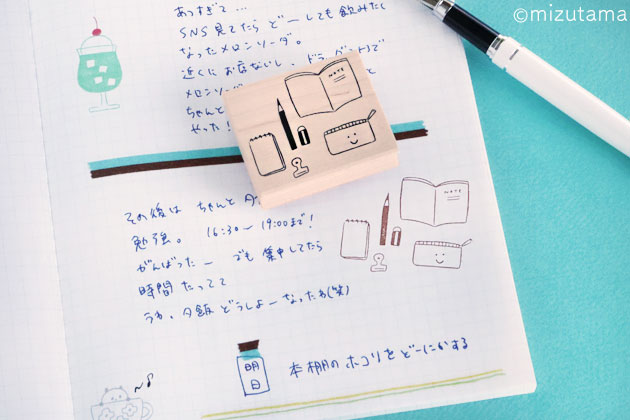 ©mizutama
あつすぎて…
SNS見てたら どーしても飲みたく
なったメロンソーダ。
近くにお店ないし、ドラッグストアで
メロンソー
ちゃんと
やった!
NOTE
その後は ちゃんと
勉強。 16:30〜19:00まで!
がんばったー でも集中してたら
時間たってて
うわ、夕飯どうしよーなったわ(笑)
NOTE
明日
本棚のホコリをどーにかする